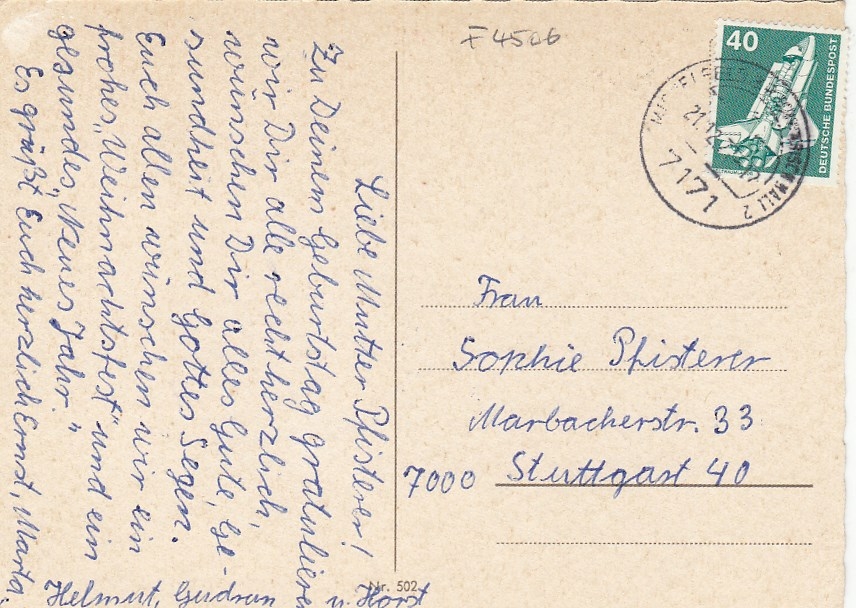 Liebe Mutter Pfisterer!
Zu Deinem Geburtstag gratulieren
wir Dir alle recht herzlich,
wünschen Dir alles Gute, Ge-
sundheit und Gottes Segen.
Euch allen wünschen wir ein
frohes "Weihnachtsfest" und ein
gesundes "Neues Jahr."
Es grüßt Euch herzlich Ernst, Marta,
Helmut, Gudrun u. Horst
Nr. 502
F4506
40
DEUTSCHE BUNDESPOST
21.12.
7171
2
Frau
Sophie Pfisterer
Marbacherstr. 33
7000 Stuttgart 40